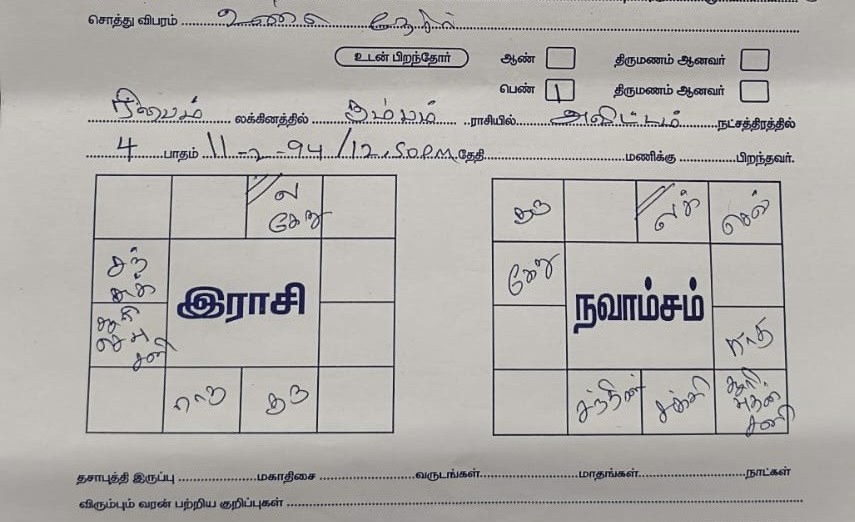 சொத்து விபரம்
உடன் பிறந்தோர் ஆண் திருமணம் ஆனவர்
பெண் 1 திருமணம் ஆனவர்
ரிஷபம் லக்கினத்தில் கும்பம் ராசியில் அவிட்டம் நட்சத்திரத்தில்
4 பாதம் 11-2-94/12.50PM தேதி மணிக்கு பிறந்தவர்.
ல
கேது
குரு
லக்
செவ்
சந்
சுக்
கேது
இராசி
நவாம்சம்
சனி
ராகு
ராகு
குரு
சந்திரன்
சுக்கி
சூரி
புதன்
சனி
தசாபுத்தி இருப்பு மகாதிசை வருடங்கள் மாதங்கள் நாட்கள்
விரும்பும் வரன் பற்றிய குறிப்புகள்